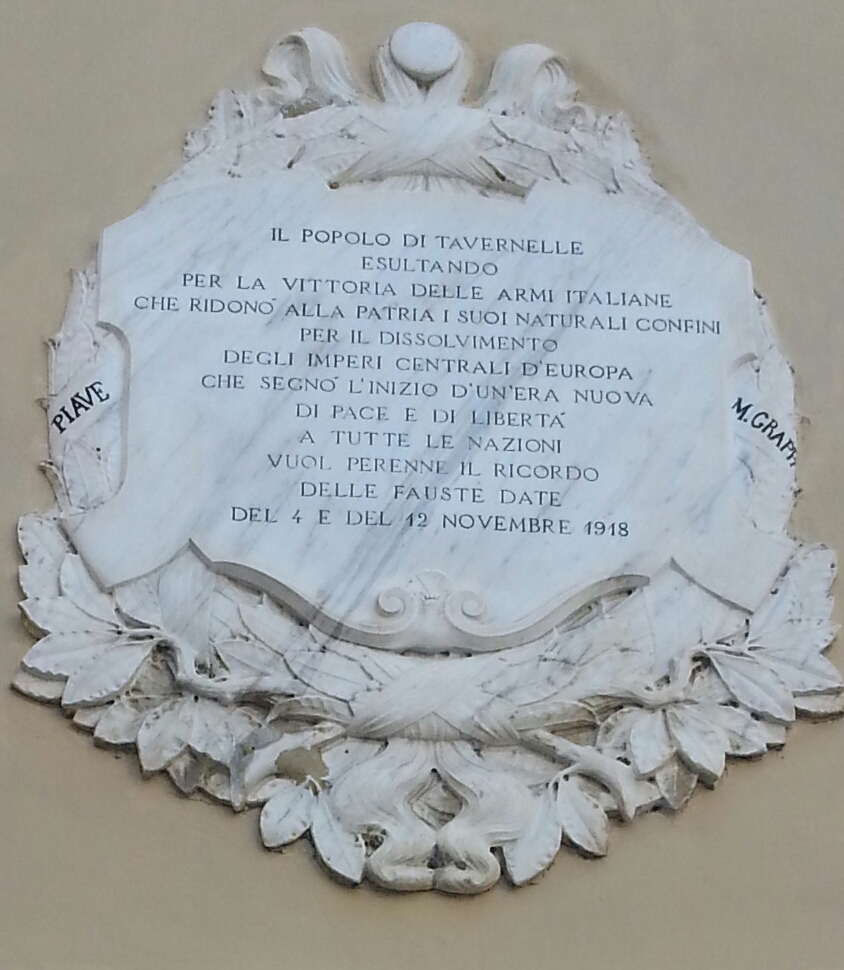 IL POPOLO DI TAVERNELLE
ESULTANDO
PER LA VITTORIA DELLE ARMI ITALIANE
CHE RIDONÓ ALLA PATRIA I SUOI NATURALI CONFINI
PER IL DISSOLVIMENTO
DEGLI IMPERI CENTRALI D'EUROPA
CHE SEGNÓ L'INIZIO D'UN'ERA NUOVA
DI PACE E DI LIBERTÁ
A TUTTE LE NAZIONI
VUOL PERENNE IL RICORDO
DELLE FAUSTE DATE
DEL 4 E DEL 12 NOVEMBRE 1918
PIAVE
M. GRAPPA